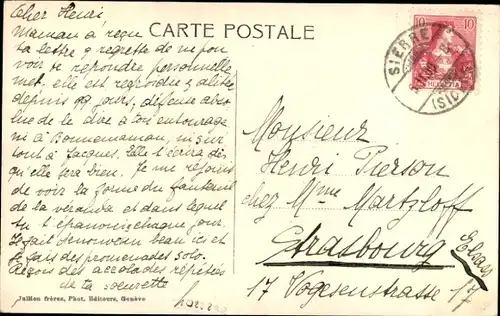 CARTE POSTALE
Cher Henri
Maman a reçu
ta lettre & regrette de ne pou
voir te répondre personnelle
met, elle est regrondre & alitée
depuis 99 jours, défense abso
lue de le dire à ton entourage
ni à Bonnemaman, ni sur
tout à Jacques. Elle t'écrira dès
qu'elle sera bien. Je me réjouis
de voir la forme du fauteuil
de la véranda et dans lequel
tu t'épanouis chaque jour.
Il fait de nouveau beau ici et
je fais des promenades solo.
Reçois des accolades répétées
de ta soeurette
10
SIERRE
HELVETIA
Monsieur
Henri Pierson
chez Mme Martzloff
Strasbourg Elsass
17 Vogesenstrasse 17
Jullien frères, Phot. Editeurs, Genève